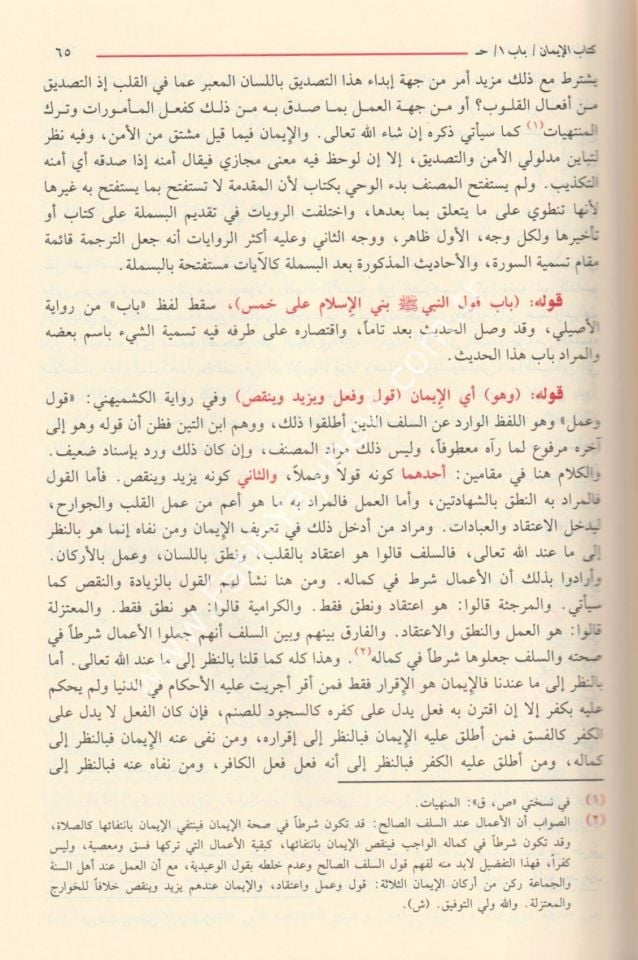 كتاب الإيمان / باب ١/ حـ ٦٥
يشترط مع ذلك مزيد أمر من جهة إبداء هذا التصديق باللسان المعبر عما في القلب إذ التصديق
من أفعال القلوب؟ أو من جهة العمل بما صدق به من ذلك كفعل المأمورات وترك
المنتهيات(١) كما سيأتي ذكره إن شاء الله تعالى. والإيمان فيما قيل مشتق من الأمن، وفيه نظر
لتباين مدلولي الأمن والتصديق، إلا إن لوحظ فيه معنى مجازي فيقال أمنه إذا صدقه أي أمنه
التكذيب. ولم يستفتح المصنف بدء الوحي بكتاب لأن المقدمة لا تستفتح بما يستفتح به غيرها
لأنها تنطوي على ما يتعلق بما بعدها، واختلفت الرويات في تقديم البسملة على كتاب أو
تأخيرها ولكل وجه، الأول ظاهر، ووجه الثاني وعليه أكثر الروايات أنه جعل الترجمة قائمة
مقام تسمية السورة، والأحاديث المذكورة بعد البسملة كالآيات مستفتحة بالبسملة.
قوله: (باب قول النبي ﷺ بني الإسلام على خمس)، سقط لفظ «باب» من رواية
الأصيلي، وقد وصل الحديث بعد تاماً، واقتصاره على طرفه فيه تسمية الشيء باسم بعضه
والمراد باب هذا الحديث.
قوله: (وهو) أي الإيمان (قول وفعل ويزيد وينقص) وفي رواية الكشميهني: «قول
وعمل» وهو اللفظ الوارد عن السلف الذين أطلقوا ذلك، ووهم ابن التين فظن أن قوله وهو إلى
آخره مرفوع لما رآه معطوفاً، وليس ذلك مراد المصنف، وإن كان ذلك ورد بإسناد ضعيف.
والكلام هنا في مقامين: أحدهما كونه قولاً وعملاً، والثاني كونه يزيد وينقص. فأما القول
فالمراد به النطق بالشهادتين، وأما العمل فالمراد به ما هو أعم من عمل القلب والجوارح،
ليدخل الاعتقاد والعبادات. ومراد من أدخل ذلك في تعريف الإيمان ومن نفاه إنما هو بالنظر
إلى ما عند الله تعالى، فالسلف قالوا هو اعتقاد بالقلب، ونطق باللسان، وعمل بالأركان.
وأرادوا بذلك أن الأعمال شرط في كماله. ومن هنا نشأ لهم القول بالزيادة والنقص كما
سيأتي. والمرجئة قالوا: هو اعتقاد ونطق فقط. والكرامية قالوا: هو نطق فقط. والمعتزلة
قالوا: هو العمل والنطق والاعتقاد. والفارق بينهم وبين السلف أنهم جعلوا الأعمال شرطاً في
صحته والسلف جعلوها شرطاً في كماله(٢). وهذا كله كما قلنا بالنظر إلى ما عند الله تعالى. أما
بالنظر إلى ما عندنا فالإيمان هو الإقرار فقط فمن أقر أجريت عليه الأحكام في الدنيا ولم يحكم
عليه بكفر إلا إن اقترن به فعل يدل على كفره كالسجود للصنم، فإن كان الفعل لا يدل على
الكفر كالفسق فمن أطلق عليه الإيمان فبالنظر إلى إقراره، ومن نفى عنه الإيمان فبالنظر إلى
كماله، ومن أطلق عليه الكفر فبالنظر إلى أنه فعل فعل الكافر، ومن نفاه عنه فبالنظر إلى
(١) في نسختي «ص، ق»: المنهيات.
(٢) الصواب أن الأعمال عند السلف الصالح: قد تكون شرطاً في صحة الإيمان فينتفي الإيمان بانتفائها كالصلاة،
وقد تكون شرطاً في كماله الواجب فينقص الإيمان بانتفائها، كبقية الأعمال التي تركها فسق ومعصية، وليس
كفراً، فهذا التفصيل لابد منه لفهم قول السلف الصالح وعدم خلطه بقول الوعيدية، مع أن العمل عند أهل السنة
والجماعة ركن من أركان الإيمان الثلاثة: قول وعمل واعتقاد، والإيمان عندهم يزيد وينقص خلافاً للخوارج
والمعتزلة. والله ولي التوفيق. (ش).